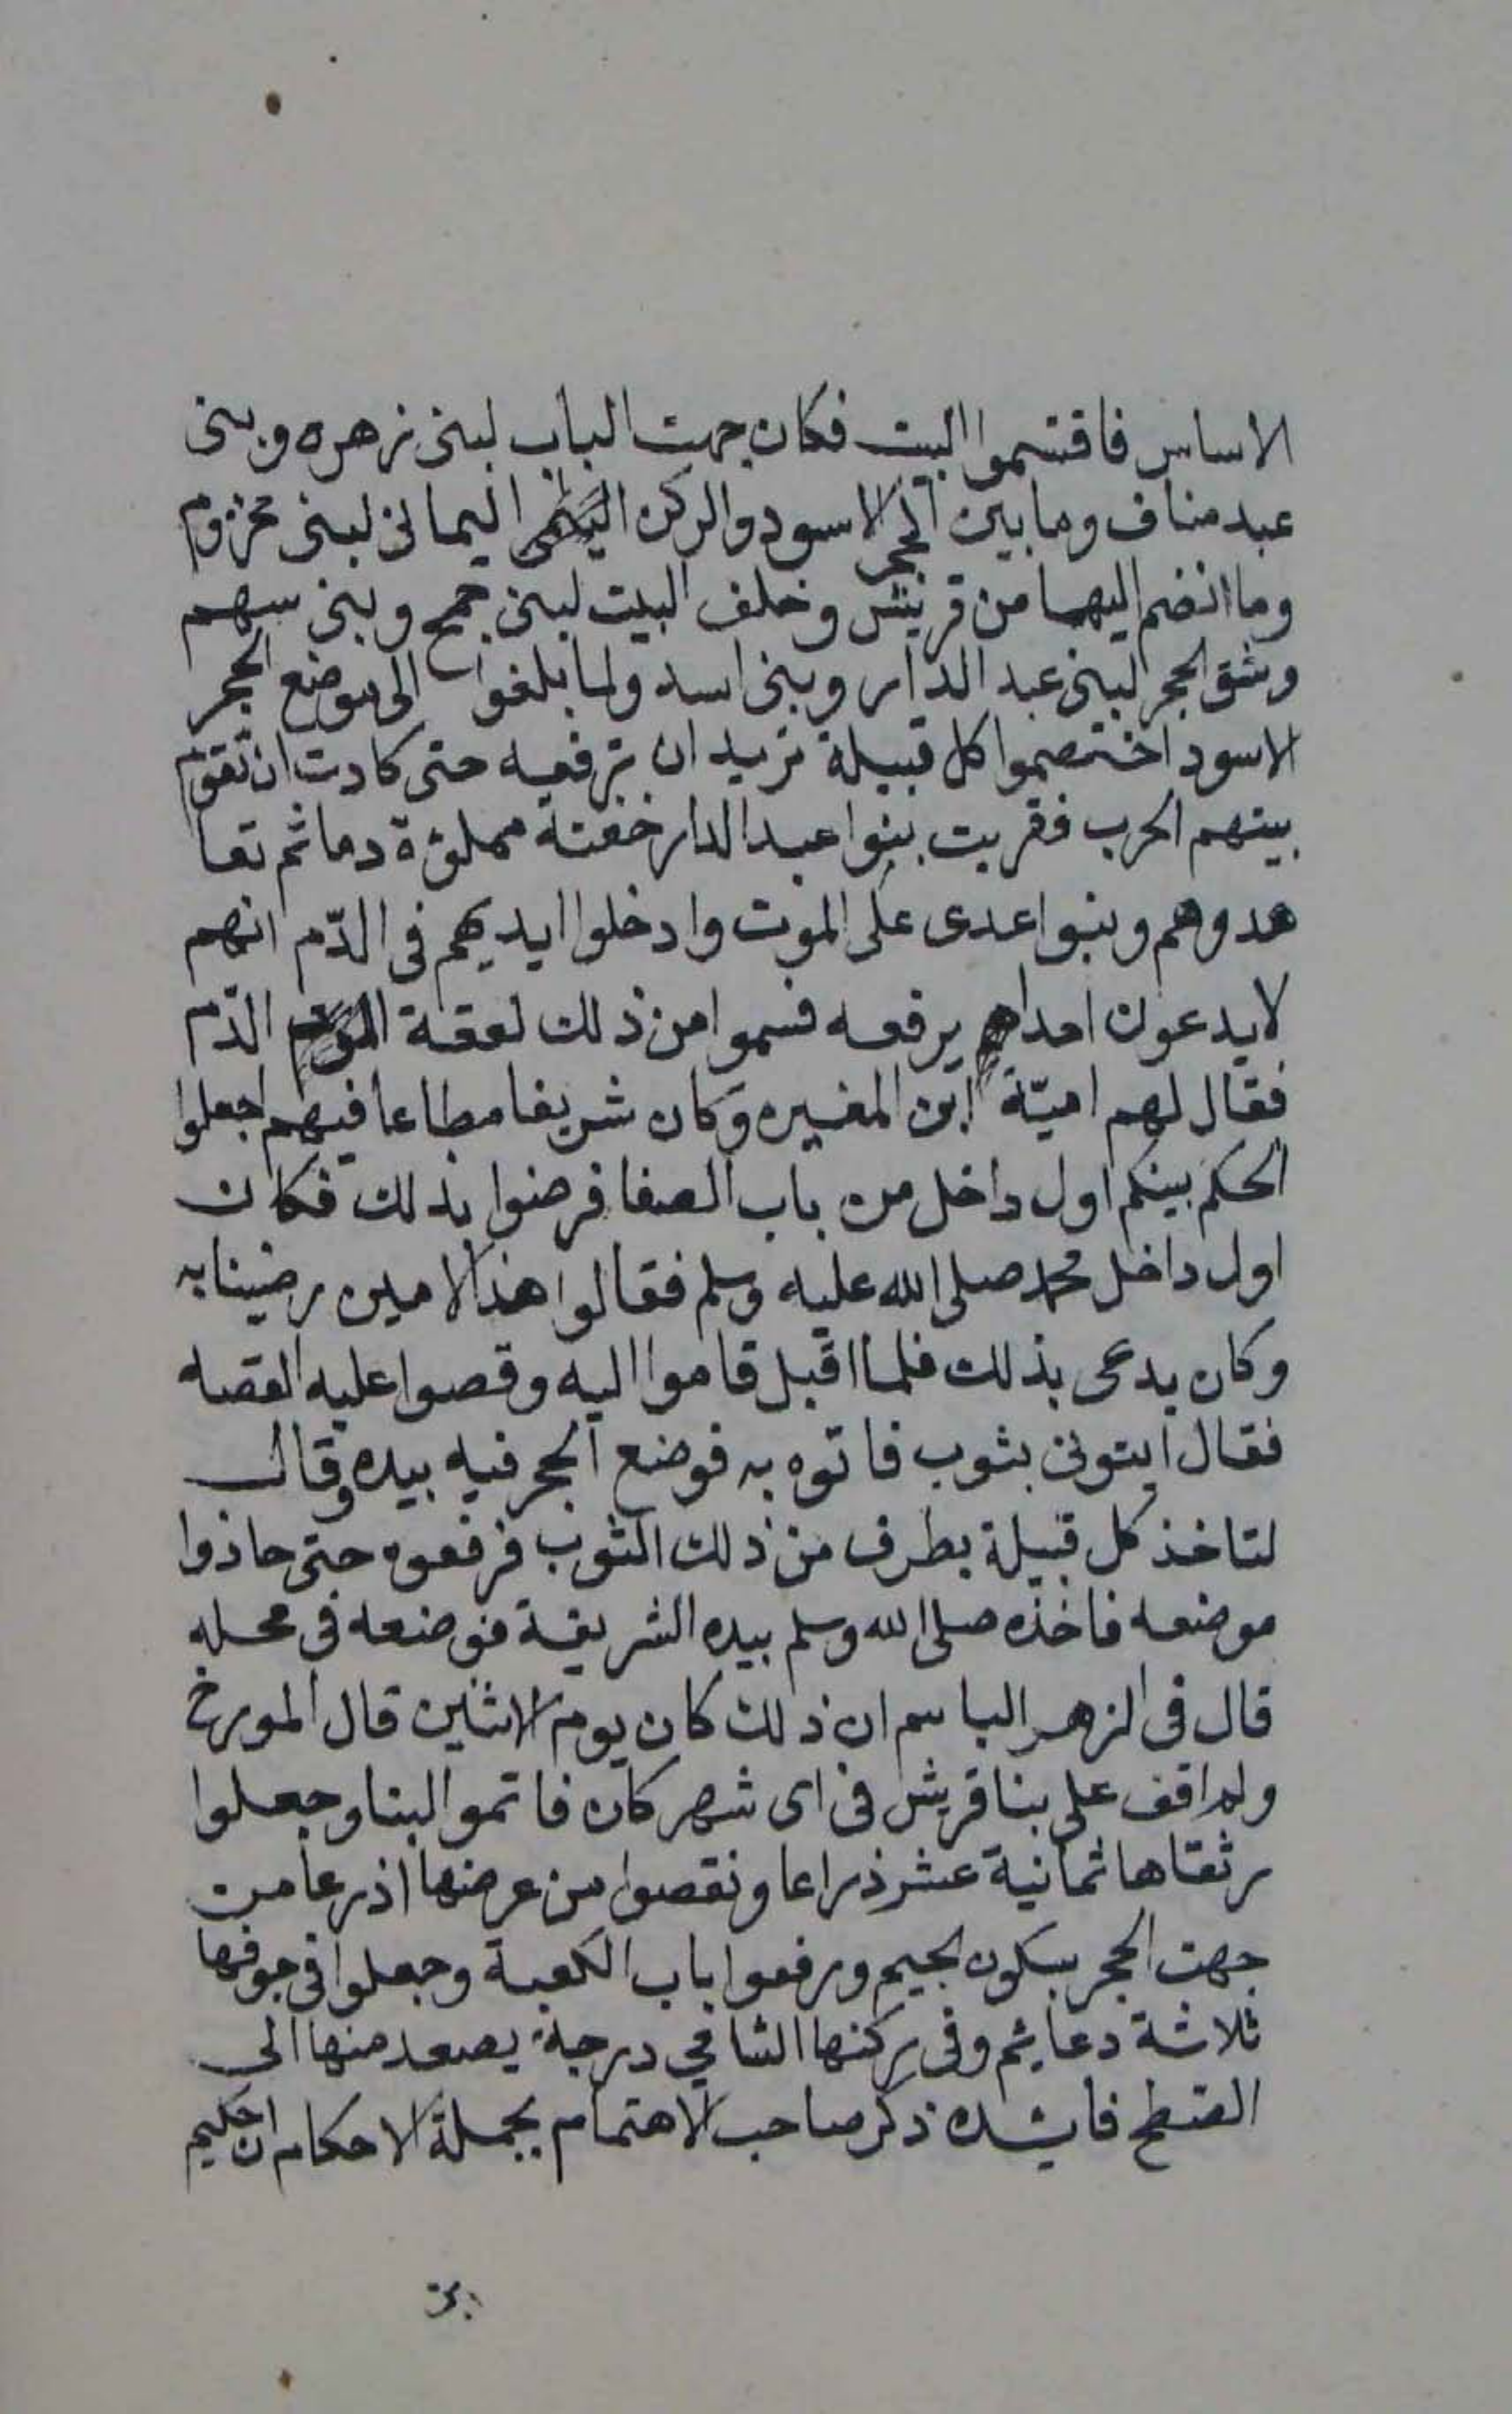 الاساس فاقتسموا البيت فكان جهت الباب لبنى زهره وبنى
عبد مناف وما بين الحجر الاسود والركن اليمانى لبنى مخزوم
وما انضم اليهما من قريش وخلف البيت لبنى جمح وبنى سهم
وشق الحجر لبنى عبد الدار وبنى اسد ولما بلغوا الى موضع الحجر
الاسود اختصموا كل قبيلة تريد ان ترفعه حتى كادت ان تقوم
بينهم الحرب فقربت بنوا عبد الدار خفتة مملؤة دما ثم تعا
هدوهم وبنوا عدى على الموت وادخلوا ايديهم فى الدّم انهم
لا يدعون احدا يرفعه فسموا من ذلك لعقة الدم
فقال لهم اميّة ابن المغيره وكان شريفا مطاعا فيهم اجعلوا
الحكم بينكم اول داخل من باب الصفا فرضوا بذلك فكان
اول داخل محمد صلى الله عليه وسلم فقالوا هذا الامين رضينا به
وكان يدعى بذلك فلما اقبل قاموا اليه وقصوا عليه القصه
فقال ايتونى بثوب فاتوه به فوضع الحجر فيه بيده وقال
لتاخذ كل قبيلة بطرف من ذلك الثوب فرفعوه حتى حاذوا
موضعه فاخذه صلى الله وسلم بيده الشريفة فوضعه فى محله
قال فى الزهر الباسم ان ذلك كان يوم الاثنين قال المورخ
ولم اقف على بنا قريش فى اى شهر كان فاتموا البنا وجعلوا
رتفاها ثمانية عشر ذراعا ونقصوا من عرضها اذرعا من
جهت الحجر بسكون الجيم ورفعوا باب الكعبة وجعلوا فى جوفها
ثلاثة دعايم وفى ركنها الشامي درجة يصعد منها الى
السطح فايده ذكر صاحب الاهتمام بجملة الاحكام ان حكيم
بن